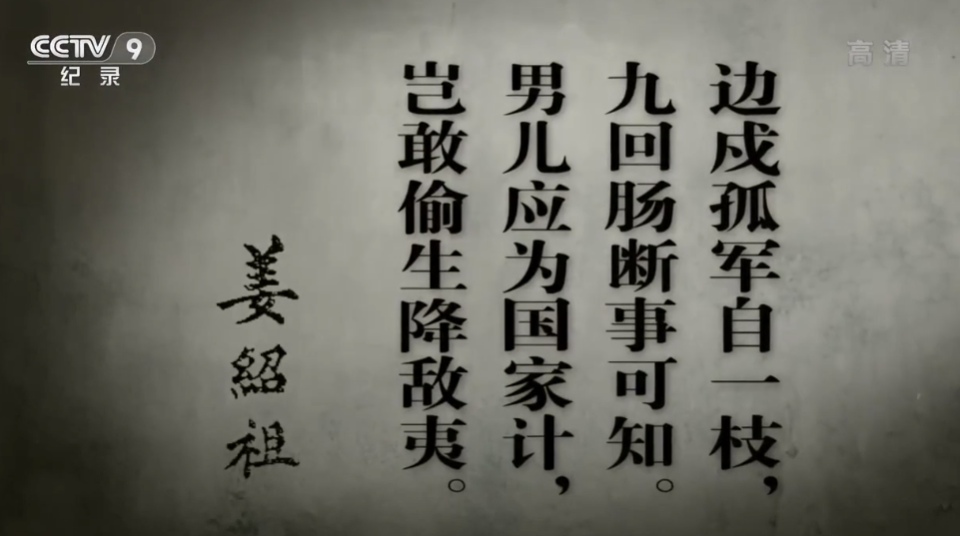 CCTV 9
纪录
高清
边戍孤军自一枝，
九回肠断事可知。
男儿应为国家计，
岂敢偷生降敌夷。
姜紹祖